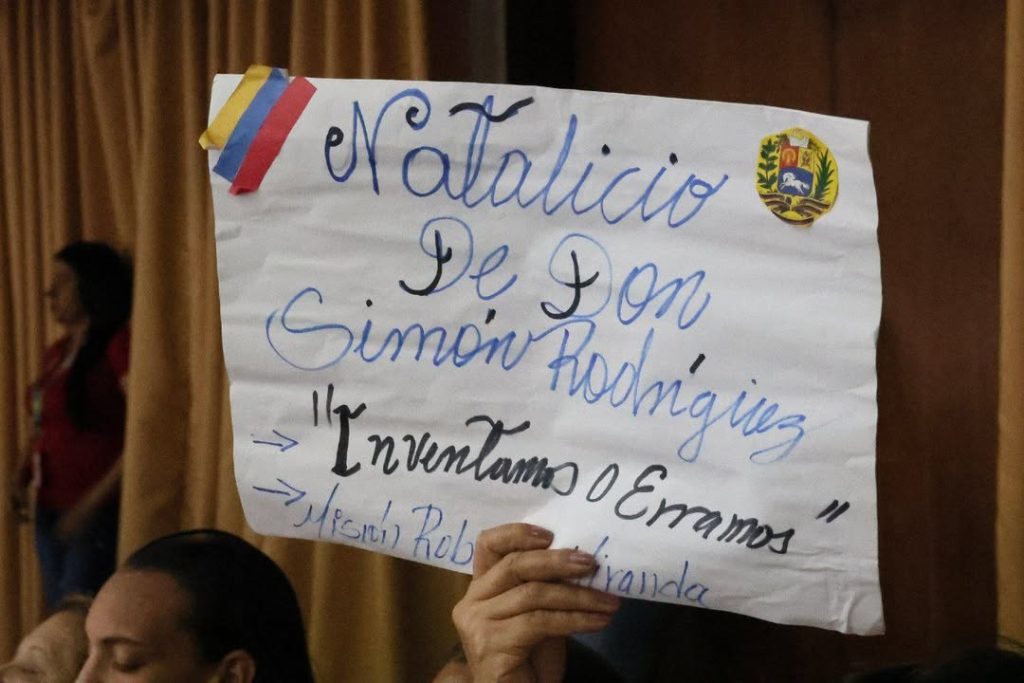 Natalicio
De Don
Simón Rodríguez
→ "Inventamos o Erramos"
→ Misión Rob Miranda